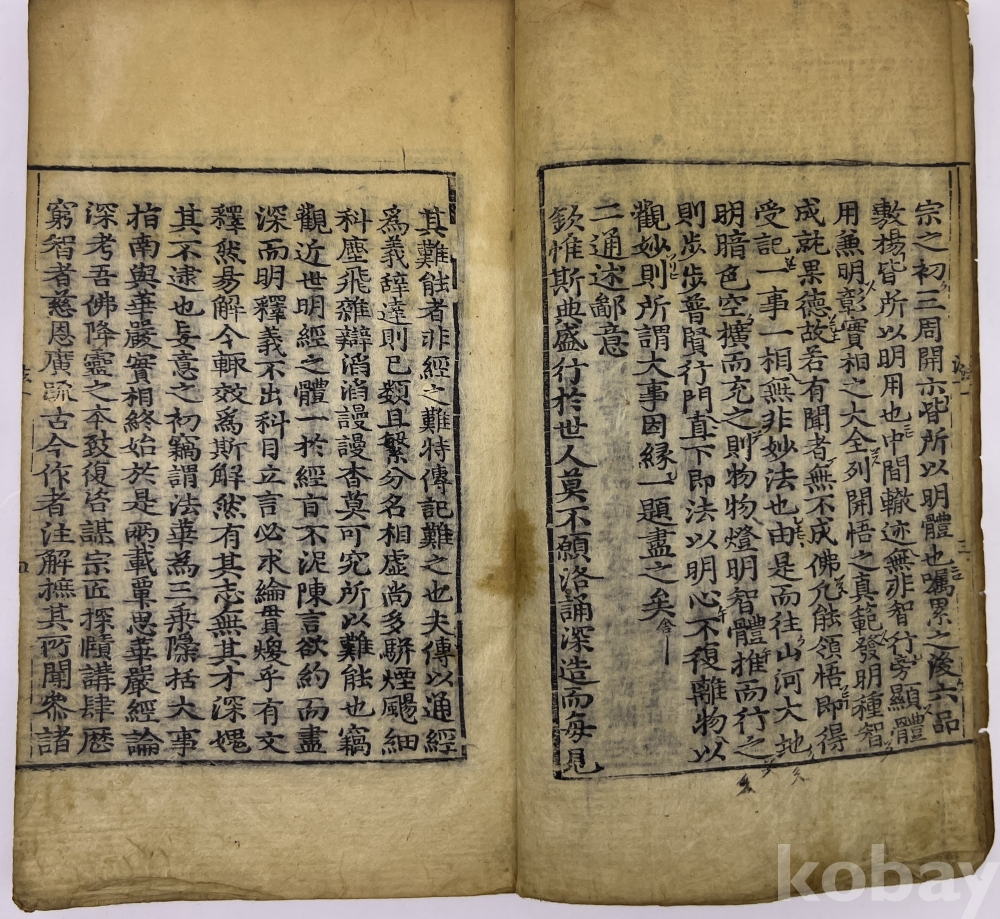 宗之初三周開示皆所以明體也囑累之後六品
敷揚皆所以明用也中間轍迹無非智行旁顯體
用兼明彰實相之大全列開悟之真範發明種智
成就果德故若有聞者無不成佛允能領悟即得
受記一事一相無非妙法也由是而往山河大地
明暗色空擴而充之則物物燈明智體推而行之
則步步普賢行門直下即法以明心不復離物以
觀妙則所謂大事因緣一題盡之矣
二通述鄙意
欽惟斯典盛行於世人莫不願洛誦深造而每見
其難能者非經之難特傳記難之也夫傳以通經
爲義辭達則已類且繫分名相虛尚多駢煙颺細
科塵飛雜辯滔滔謾謾杳莫可究所以難能也竊
觀近世明經之體一於經旨不泥陳言欲約而盡
深而明釋義不出科目立言必求綸貫煥乎有文
釋然易解今輒效爲斯解然有其志無其才深媿
其不逮也妄意之初竊謂法華為三乘隱括大事
指南與華嚴實相終始於是兩載覃思華嚴經論
深考吾佛降靈之本致復咨謀宗匠探賾講肆歷
窮智者慈恩廣疏古今作者注解摭其所聞叅諸
kobay